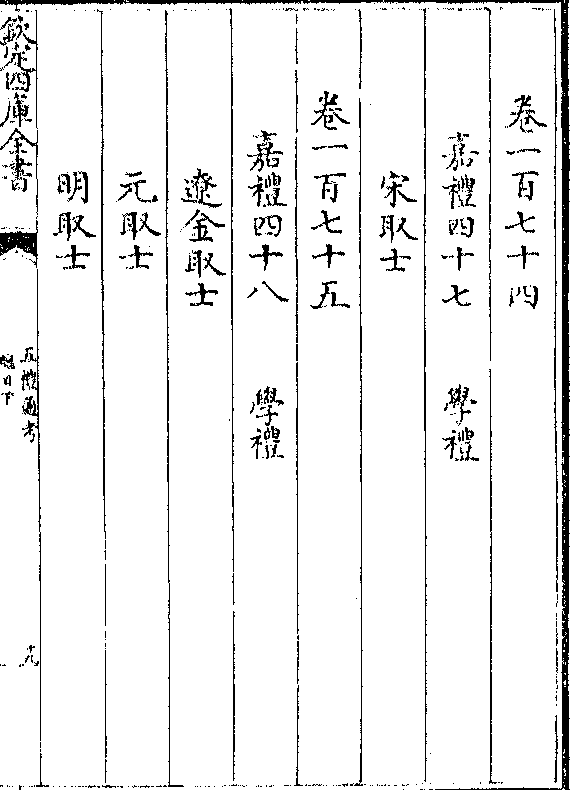 卷一百七十四
嘉禮四十七 學禮
宋取士
卷一百七十五
嘉禮四十八 學禮
遼金取士
元取士
明取士
欽定四庫全書
五禮通考
總目下
九